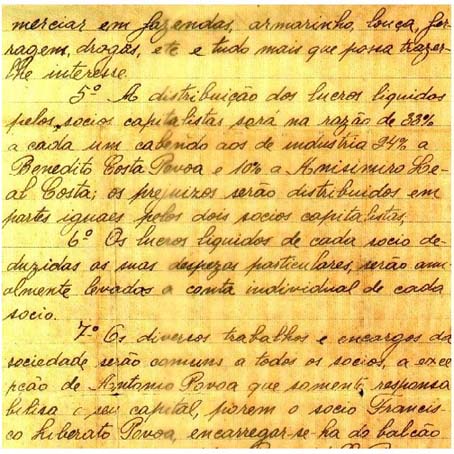 merciar em fazendas, armarinho, louça, fer-
ragem, drogas, etc e tudo mais que possa trazer-
lhe interesse.
5º A distribuição dos lucros liquidos
pelos socios capitalistas será na razão de 33%
a cada um cabendo aos de industria 24% a
Benedito Costa Povoa e 10% a Anisimiro Le-
al Costa; os prejuizos serão distribuidos em
partes iguaes pelos dois socios capitalistas,
6º Os lucros liquidos de cada socio de-
duzidas as suas despezas particulares, serão anu-
almente levados a conta individual de cada
socio.
7º Os diversos trabalhos e encargos da
sociedade serão comuns a todos os socios, a exce
pção de Antonio Povoa que somente responsa
bilisa o seu capital, porem o socio Francis-
co Liberato Povoa, encarregar-se-ha do balcão